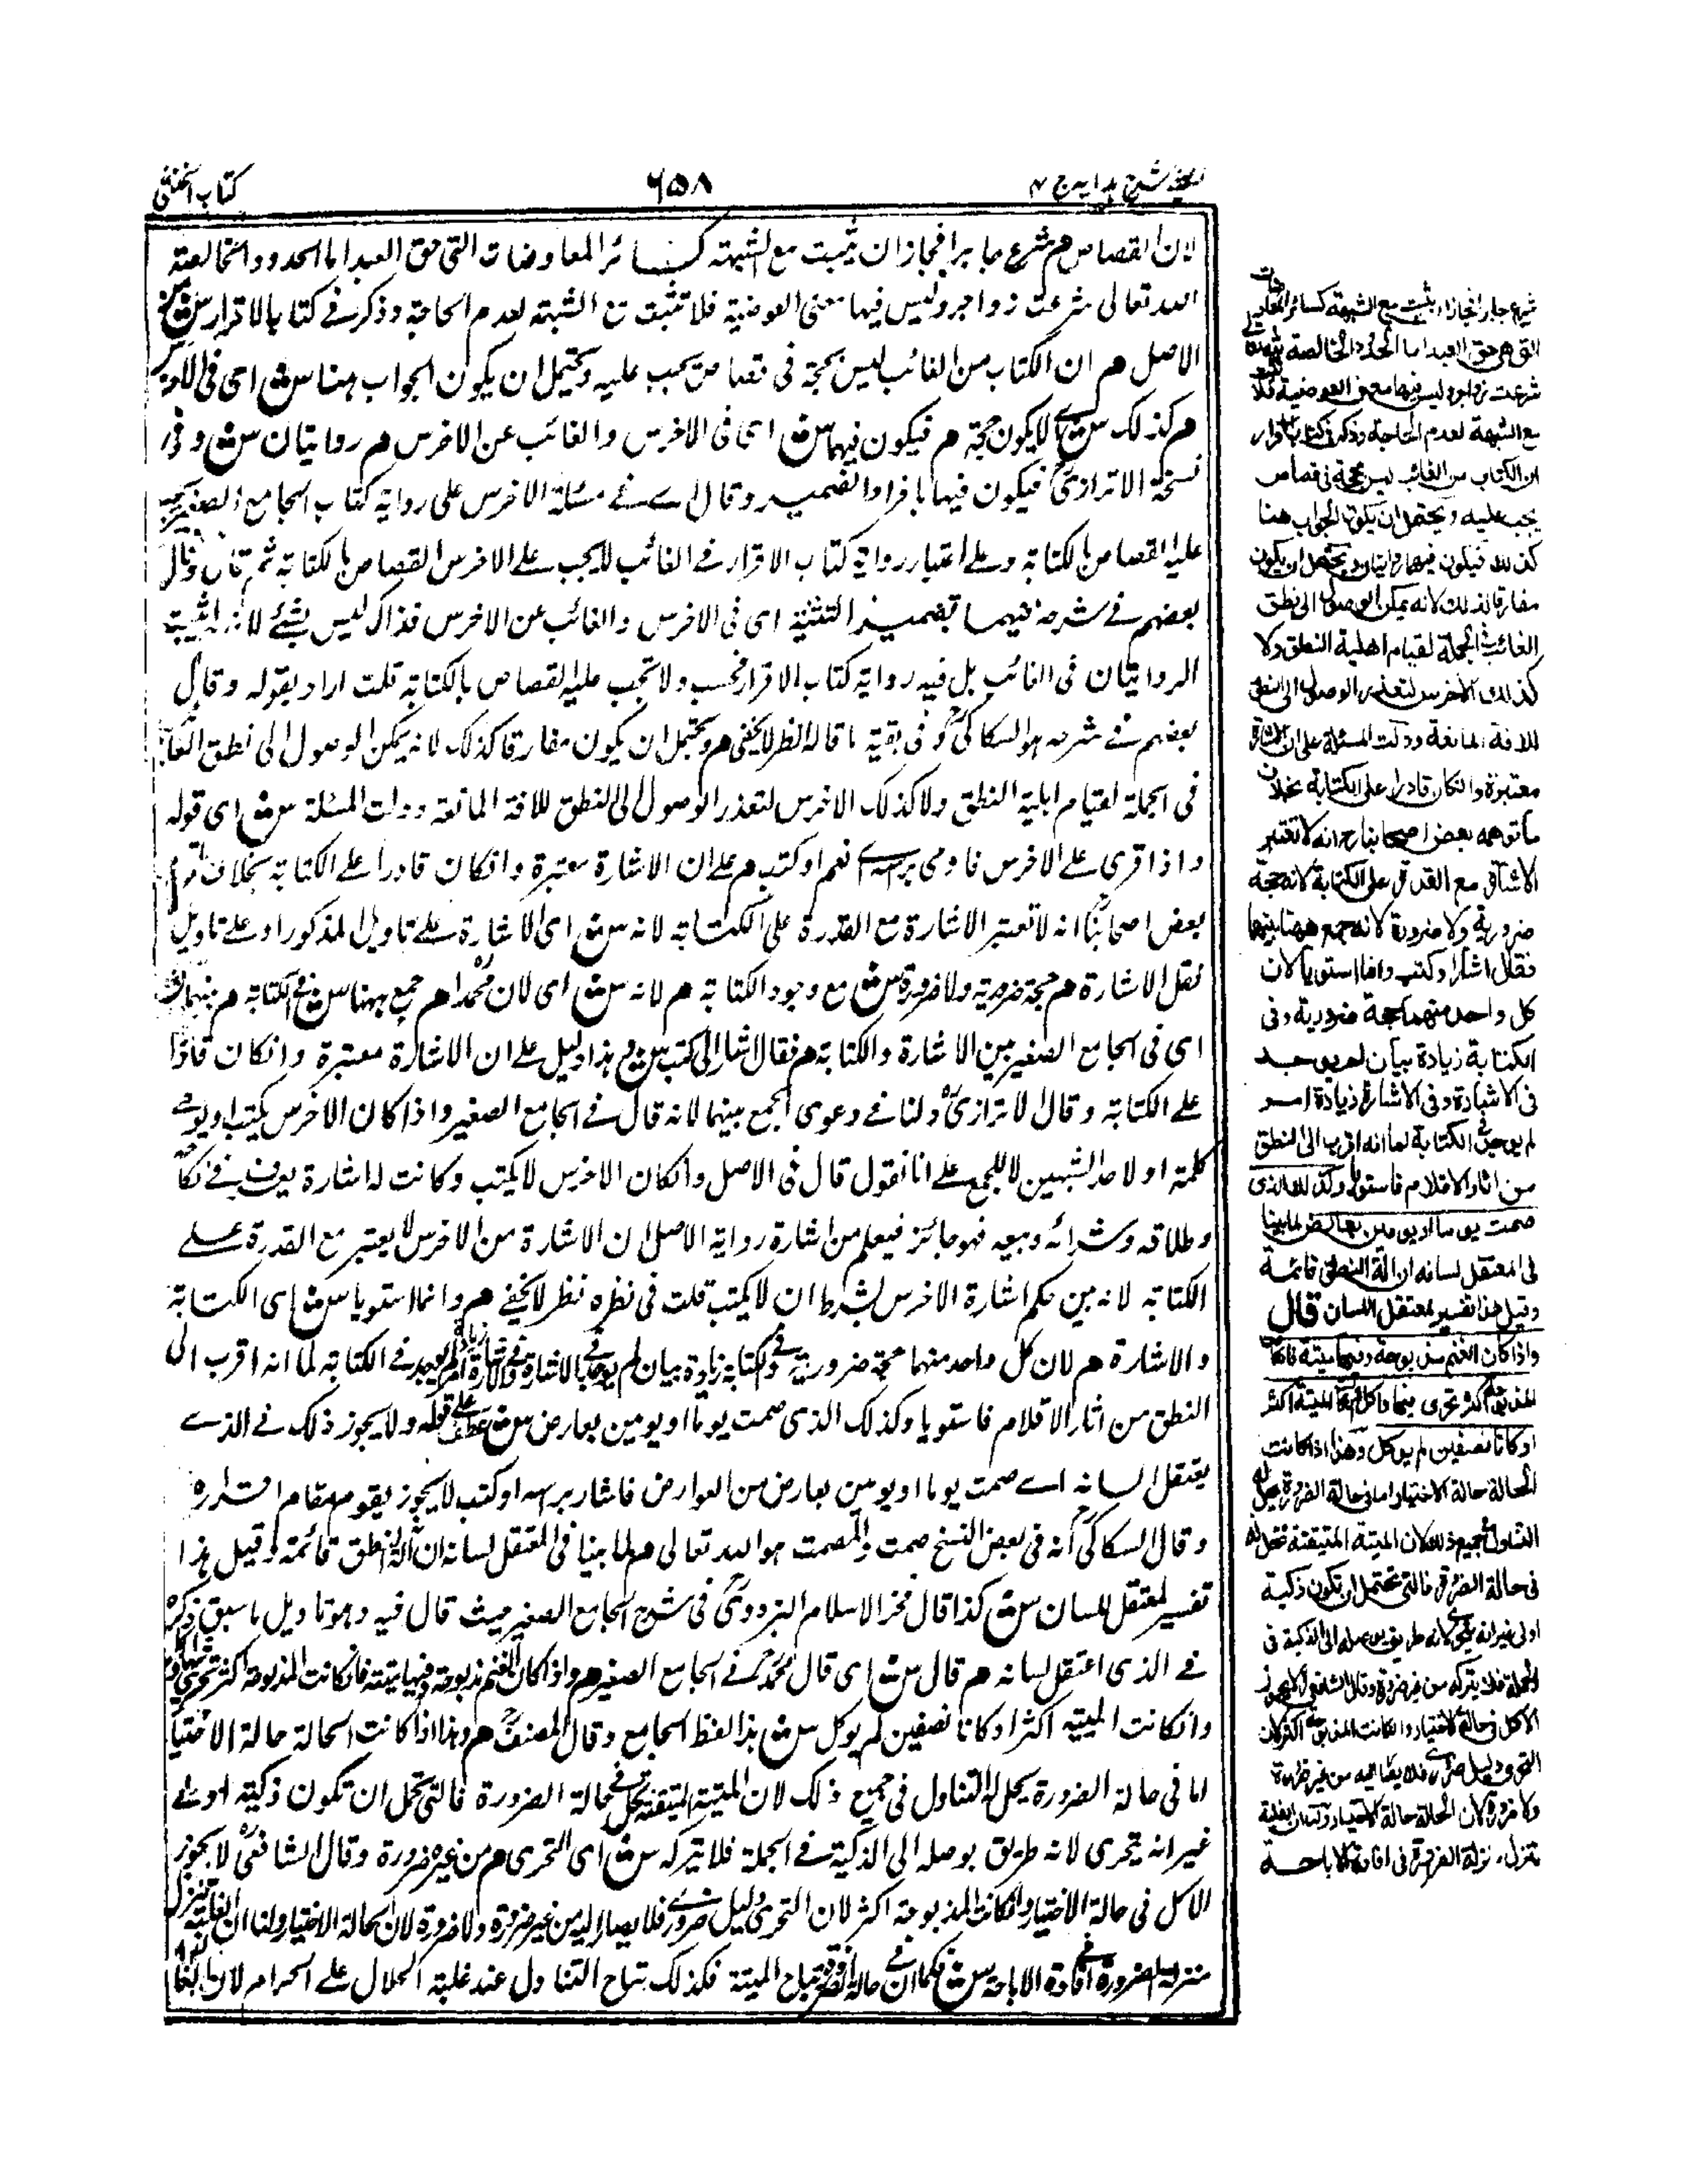 كتاب الخنثى
٦٥٨
شرح هدايه ج ٤
لان القصاص هم شرع جابرا فجاز ان يثبت مع الشبهة كسائر المعاوضات التى حق العبد اما الحدود الخالصة
لله تعالى شرعت زواجر وليس فيها معنى العوضية فلا تثبت مع الشبهة لعدم الحاجة وذكر فى كتاب الاقرار ش من
الاصل هم ان الكتاب من الغائب ليس بحجة فى قصاص يجب عليه ويحتمل ان يكون الجواب هنا ش اى فى الاخرس
هم كذلك ش لا يكون حجة هم فيكون فيهما ش اى فى الاخرس والغائب عن الاخرس هم روايتان ش وفى
نسخة الاترازى فيكون فيها بافراد الضمير وقال اى فى مسئلة الاخرس على رواية كتاب الجامع الصغير يجب
عليه القصاص بالكتابة وعلى اعتبار رواية كتاب الاقرار فى الغائب لا يجب على الاخرس القصاص بالكتابة ثم قال وقال
بعضهم فى شرحه فيهما بضمير التثنية اى فى الاخرس والغائب عن الاخرس فذاك ليس بشئ لانه لم يثبت
الروايتان فى الغائب بل فيه رواية كتاب الاقرار فحسب ولا تجب عليه القصاص بالكتابة قلت اراد بقوله وقال
بعضهم فى شرحه هو السكاكى وفى بقية ما قاله نظر لا يخفى هم ويحتمل ان يكون مفارقا كذلك لانه يمكن الوصول الى نطق الغائب
فى الجملة لقيام اهلية النطق ولا كذلك الاخرس لتعذر الوصول الى النطق للافة المانعة ودلت المسئلة ش اى قوله
واذا قرئ على الاخرس فاومى براسه اى نعم او كتب هم على ان الاشارة معتبرة وانكان قادرا على الكتابة بخلاف ما توهم
بعض اصحابنا انه لا تعتبر الاشارة مع القدرة على الكتابة لانه ش اى الاشارة على تاويل المذكور او على تاويل
نقل الاشارة هم حجة ضرورية ولا ضرورة ش مع وجود الكتابة هم لانه ش اى لان محمدا هم جمع ههنا ش فى الكتابة هم بينهما ش
اى فى الجامع الصغير بين الاشارة والكتابة هم فقال اشار او كتب ش هذا دليل على ان الاشارة معتبرة وانكان قادرا
على الكتابة وقال الاترازى ولنا فى دعوى الجمع بينهما لانه قال فى الجامع الصغير واذا كان الاخرس يكتب او يومى
كلمة او لاحد الشيئين لا للجمع على انا نقول قال فى الاصل وانكان الاخرس لا يكتب وكانت له اشارة يعرف فى نكاحه
وطلاقه وشرائه وبيعه فهو جائز فيعلم من اشارة رواية الاصل ان الاشارة من الاخرس لا يعتبر مع القدرة على
الكتابة لانه بين حكم اشارة الاخرس بشرط ان لا يكتب قلت فى نظره نظر لا يخفى هم وانما استويا ش اى الكتابة
والاشارة هم لان كل واحد منهما حجة ضرورية وفى الكتابة زيادة بيان لم يوجد فى الاشارة وفى الاشارة زيادة اثر لم يوجد فى الكتابة لما انه اقرب الى
النطق من اثار الاقلام فاستويا وكذلك الذى صمت يوما او يومين بعارض ش عطف على قوله ولا يجوز ذلك فى الذى
يعتقل لسانه اى صمت يوما او يومين بعارض من العوارض فاشار براسه او كتب لا يجوز يقوم مقام اقراره
وقال السكاكى انه فى بعض النسخ صمت والمصمت هو الله تعالى هم لما بينا فى المعتقل لسانه ان آلة النطق قائمة وقيل هذا
تفسير لمعتقل اللسان ش كذا قال فخر الاسلام البزدوى فى شرح الجامع الصغير حيث قال فيه وهو تاويل ما سبق ذكره
فى الذى اعتقل لسانه هم قال ش اى قال محمد فى الجامع الصغير هم واذا كان الغنم مذبوحة وفيها ميتة فانكانت المذبوحة اكثر تحرى فيها واكل
وانكانت الميتة اكثر او كانا نصفين لم يوكل ش هذا لفظ الجامع وقال المصنف هم وهذا اذا كانت الحالة حالة الاختيار
اما فى حالة الضرورة يحل له التناول فى جميع ذلك لان الميتة المتيقنة تحل فى حالة الضرورة فالتى تحتمل ان تكون ذكية اولى
غير انه يتحرى لانه طريق يوصله الى الذكية فى الجملة فلا يتركه ش اى التحرى هم من غير ضرورة وقال الشافعى لا يجوز
الاكل فى حالة الاختيار وانكانت المذبوحة اكثر لان التحرى دليل ضرورى فلا يصار اليه من غير ضرورة ولا ضرورة لان الحالة حالة الاختيار ولنا ان الغلبة تنزل
منزلة الضرورة فى افادة الاباحة ش فكما ان فى حالة الضرورة تباح الميتة فكذلك تباح التناول عند غلبة الحلال على الحرام لان الغالب
شرع جابرا فجاز ان يثبت مع الشبهة كسائر المعاوضات
التى هى حق العبد اما الحدود الخالصة لله تعالى
شرعت زواجر وليس فيها معنى العوضية فلا تثبت
مع الشبهة لعدم الحاجة وذكر فى كتاب الاقرار
ان الكتاب من الغائب ليس بحجة فى قصاص
يجب عليه ويحتمل ان يكون الجواب هنا
كذلك فيكون فيهما روايتان ويحتمل ان يكون
مفارقا لذلك لانه يمكن الوصول الى نطق
الغائب فى الجملة لقيام اهلية النطق ولا
كذلك الاخرس لتعذر الوصول الى النطق
للافة المانعة ودلت المسئلة على ان الاشارة
معتبرة وانكان قادرا على الكتابة بخلاف
ما توهمه بعض اصحابنا رح انه لا تعتبر
الاشارة مع القدرة على الكتابة لانه حجة
ضرورية ولا ضرورة لانه جمع ههنا بينهما
فقال اشار او كتب وانما استويا لان
كل واحد منهما حجة ضرورية وفى
الكتابة زيادة بيان لم يوجد
فى الاشارة وفى الاشارة زيادة اثر
لم يوجد فى الكتابة لما انه اقرب الى النطق
من اثار الاقلام فاستويا وكذلك الذى
صمت يوما او يومين بعارض لما بينا
فى المعتقل لسانه ان آلة النطق قائمة
وقيل هذا تفسير لمعتقل اللسان قال
واذا كان الغنم مذبوحة وفيها ميتة فانكانت
المذبوحة اكثر تحرى فيها واكل وانكانت الميتة اكثر
او كانا نصفين لم يوكل وهذا اذا كانت
الحالة حالة الاختيار اما فى حالة الضرورة يحل له
التناول فى جميع ذلك لان الميتة المتيقنة تحل له
فى حالة الضرورة فالتى تحتمل ان تكون ذكية
اولى غير انه يتحرى لانه طريق يوصله الى الذكية فى
الجملة فلا يتركه من غير ضرورة وقال الشافعى لا يجوز
الاكل فى حالة الاختيار وانكانت المذبوحة اكثر لان
التحرى دليل ضرورى فلا يصار اليه من غير ضرورة
ولا ضرورة لان الحالة حالة الاختيار ولنا ان الغلبة
تنزل منزلة الضرورة فى افادة الاباحة